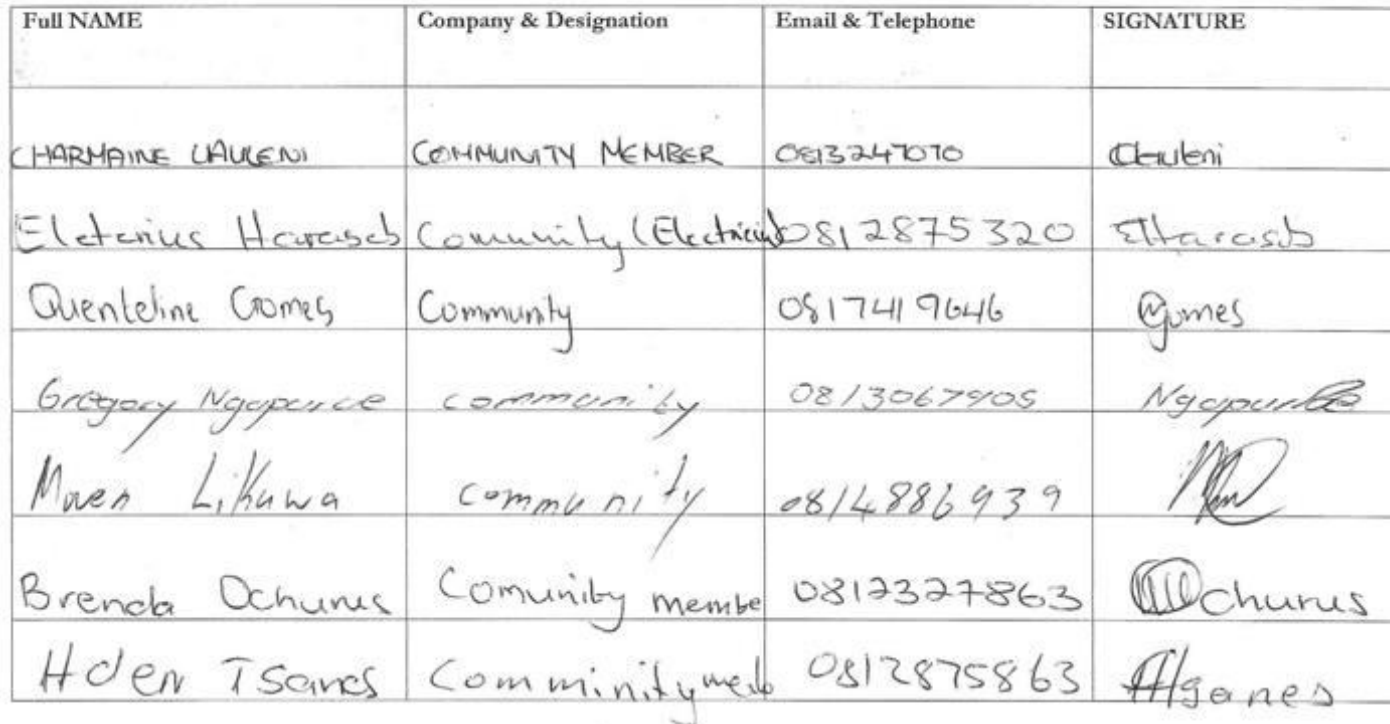 Full NAME Company & Designation Email & Telephone SIGNATURE
CHARMAINE LAULENI COMMUNITY MEMBER 0813247070 Clauleni
Eleterius Haraseb Community (Electrician) 0812875320 EHaraseb
Quenteline Gomes Community 0817419646 QGomes
Gregory Ngapurue community 0813067905 Ngapurue
Moven Likuwa community 0814886939
Brenda Ochurus Comunity membe 0812327863 Ochurus
Tsanes Comminity 0812875863